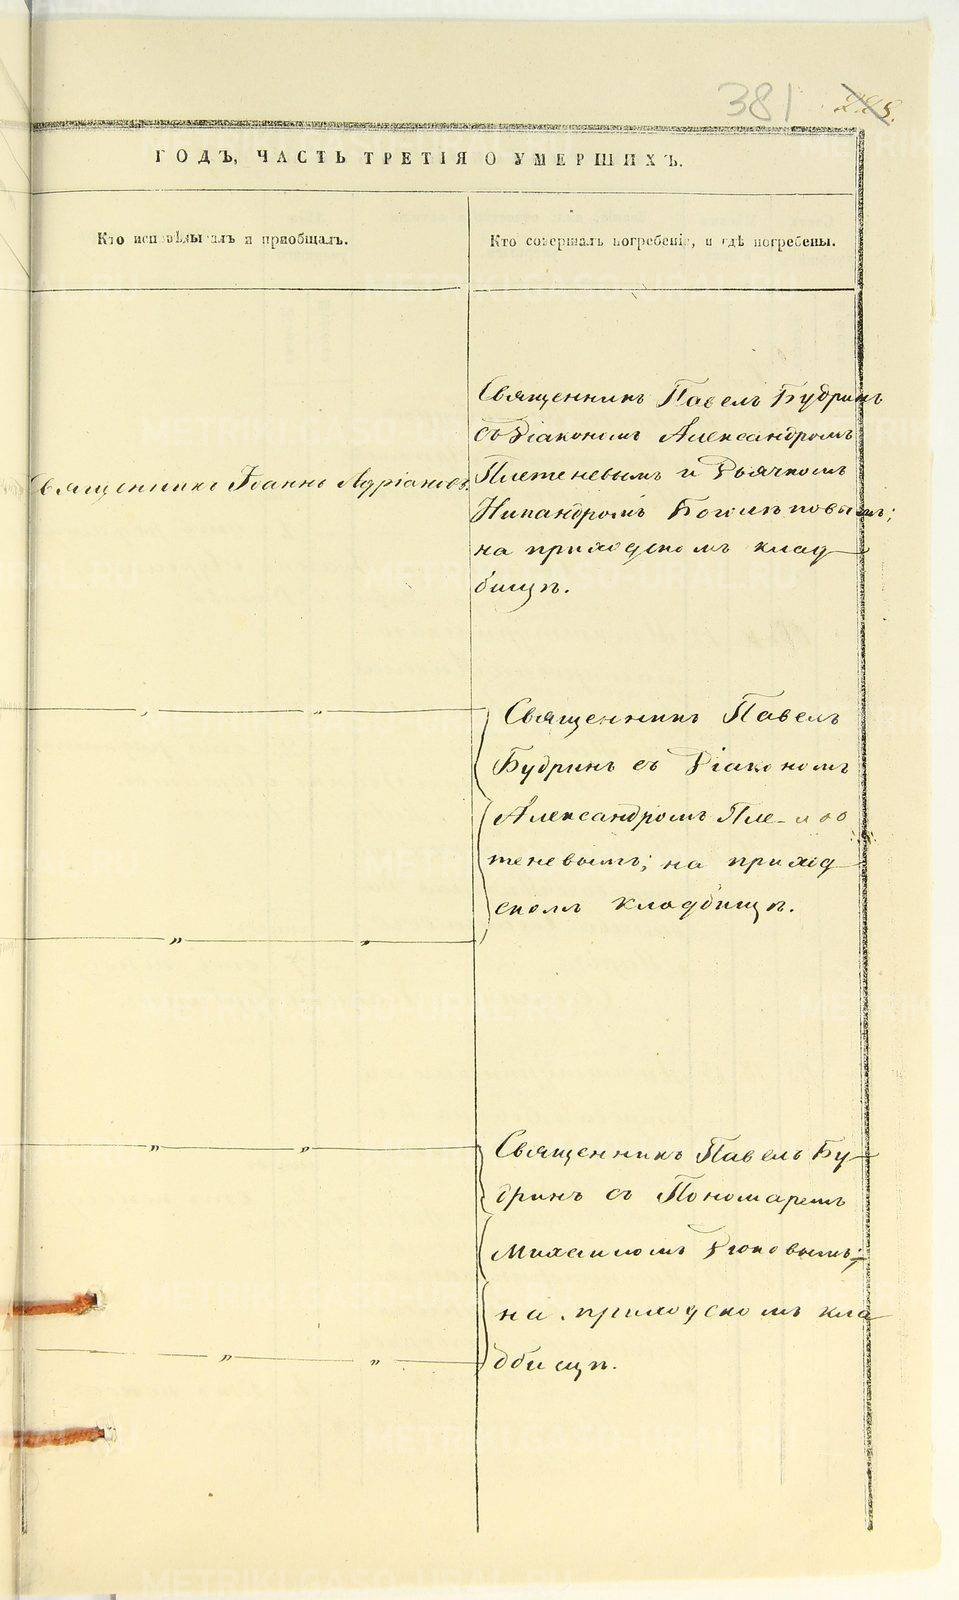 381
ГОДЪ, ЧАСТЬ ТРЕТІЯ О УМЕРШИХЪ.
Кто исповѣдывалъ и пріобщалъ.
Кто совершалъ погребеніе, и гдѣ погребены.
Священникъ Іоаннъ Адріановъ.
Священникъ Павелъ Будринъ
съ Діакономъ Александромъ
Плетеневымъ и Дьячкомъ
Никандромъ Боголѣповымъ;
на приходскомъ клад
бищѣ.
„ „
Священникъ Павелъ
Будринъ съ Діакономъ
Александромъ Пле-
теневымъ; на приход
скомъ кладбищѣ.
„ „
„ „
Священникъ Павелъ Бу-
дринъ съ Пономаремъ
Михаиломъ
на приходскомъ кла
дбищѣ.
„ „
METRIKI.GASO-URAL.RU